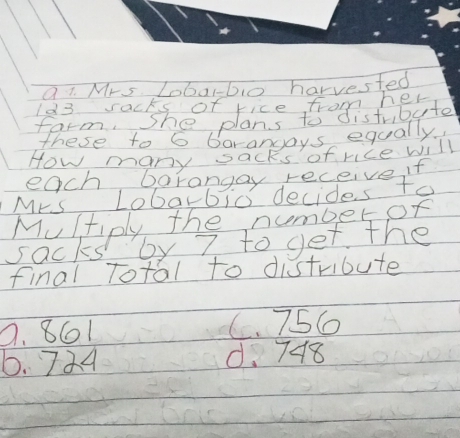 a 1. Mrs Lobarbio harvested
123 sacks of rice from her
farm. She plans to distribute
these to 6 barangays equally.
How many sacks of rice will
each barangay receive if
Mrs Lobarbio decides to
Multiply the number of
sacks by 7 to get the
final Total to distribute
a. 861 c. 756
b. 724 d. 748